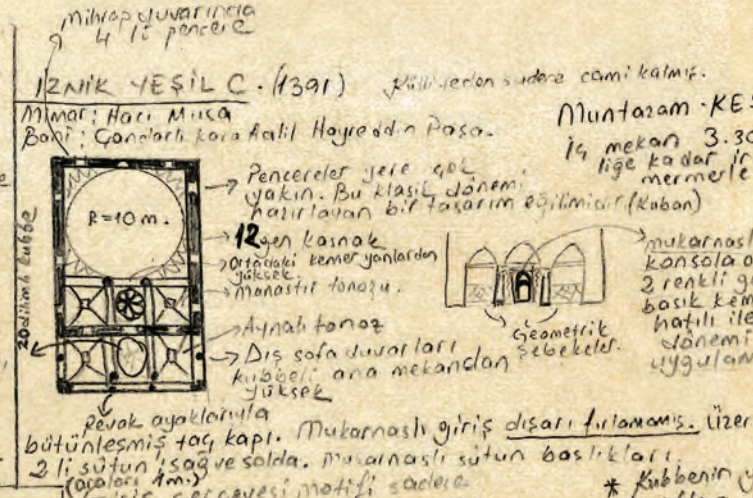 Mihrap duvarında
4 lü pencere
İZNİK YEŞİL C. (1391) Külliyeden sadece cami kalmış.
Mimar: Hacı Musa
Bani: Çandarlı Kara Halil Hayreddin Paşa.
Muntazam
İç mekan 3.30
liğe kadar
mermerle
Pencereler yere çok
yakın. Bu klasik dönemi
hazırlayan bir tasarım eğilimidir (Kuban)
R=10 m.
12gen kasnak
Ortadaki kemer yanlardan
yüksek.
Manastır tonozu.
20 dilimli kubbe
Aynalı tonoz
Dış sofa duvarları
kubbeli ana mekandan
yüksek
mukarnaslı
konsola
2 renkli
basık
hatılı ile
dönemi
Geometrik
şebekeler.
Revak ayaklarıyla
bütünleşmiş taç kapı. Mukarnaslı giriş dışarı fırlamamış.
2 li sütun (sağ ve solda. Mukarnaslı sütun başlıkları.
(araları 1m.)
çerçevesi motifi sadece
* Kubbenin